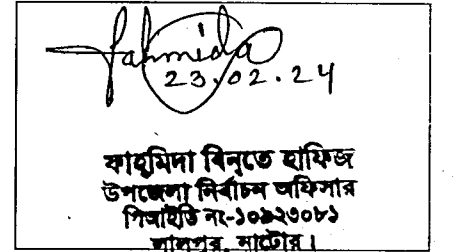 Fahmida
23.02.24
ফাহমিদা বিনতে হাফিজ
উপজেলা নির্বাচন অফিসার
পিআইডি নং-১০৯২৩০৮১
লালপুর, নাটোর।